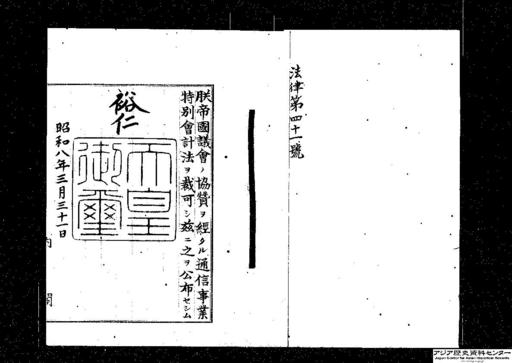 法律第四十一號
朕帝國議會ノ協贊ヲ經タル通信事業
特別會計法ヲ裁可シ茲ニ之ヲ公布セシム
裕仁
天皇
御璽
昭和八年三月三十一日
内閣
アジア歴史資料センター
Japan Center for Asian Historical Records